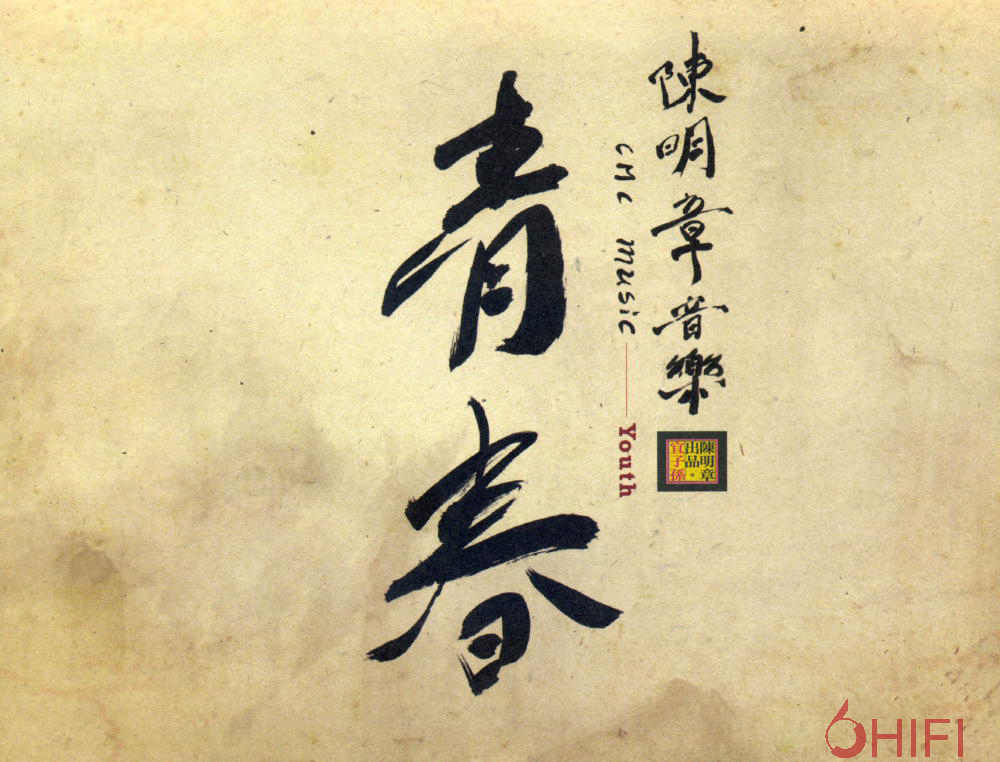 陳明章音樂
陳明章
出品。
宜子孫
cMc music
Youth
青春
6HIFI